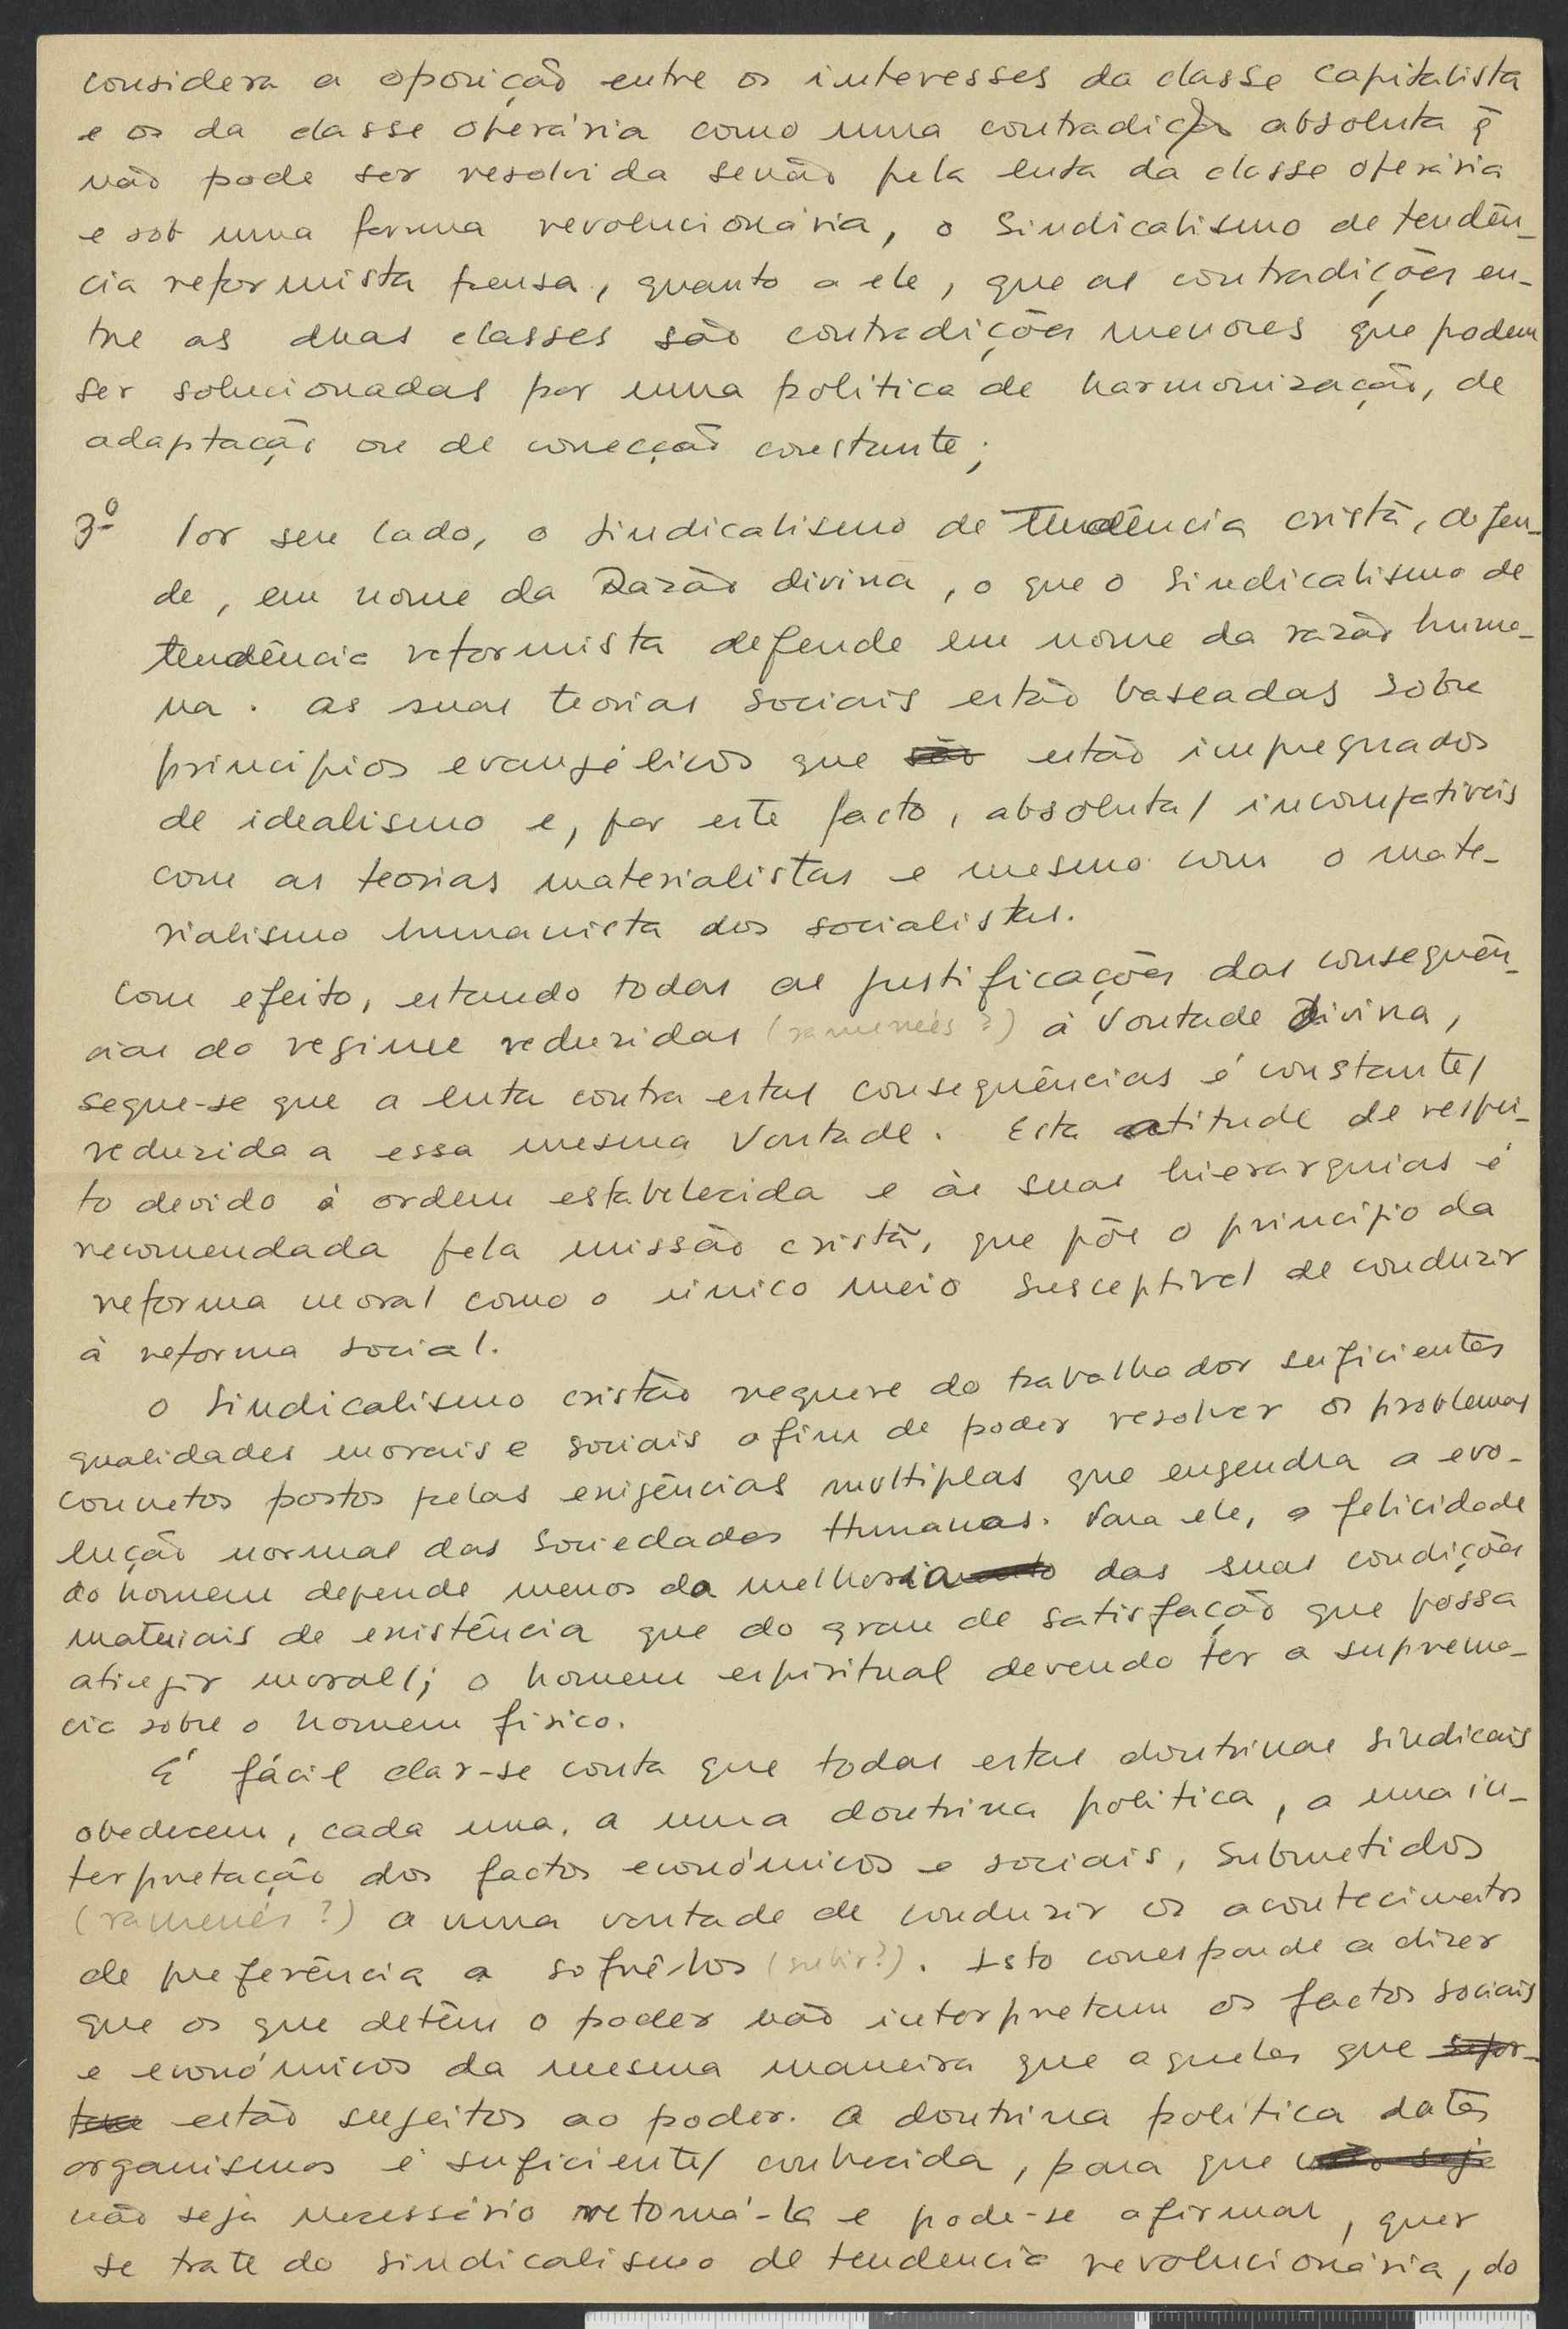 considera a oposição entre os interesses da classe capitalista
e os da classe operária como uma contradição absoluta q̃
não pode ser resolvida senão pela luta da classe operária
e sob uma forma revolucionária, o Sindicalismo de tendên-
cia reformista pensa, quanto a ele, que as contradições en-
tre as duas classes são contradições menores que podem
ser solucionadas por uma política de harmonização, de
adaptação ou de correcção constante;
3º Por seu lado, o Sindicalismo de tendência cristã, defen-
de, em nome da Razão divina, o que o Sindicalismo de
tendência reformista defende em nome da razão huma-
na. As suas teorias sociais estão baseadas sobre
princípios evangélicos que são estão impregnados
de idealismo e, por este facto, absoluta/ incompatíveis
com as teorias materialistas e mesmo com o mate-
rialismo humanista dos socialistas.
Com efeito, estando todas as justificações das consequên-
cias do regime reduzidas (ramenées ?) à Vontade Divina,
segue-se que a luta contra estas consequências é constante/
reduzida a essa mesma Vontade. Esta atitude de respei-
to devido à ordem estabelecida e às suas hierarquias é
recomendada pela missão cristã, que põe o princípio da
reforma moral como o único meio susceptível de conduzir
à reforma social.
O Sindicalismo cristão requere do trabalhador suficientes
qualidades morais e sociais afim de poder resolver os problemas
concretos postos pelas exigências multiplas que engendra a evo-
lução normal das Sociedades Humanas. Para ele, a felicidade
do homem depende menos da melhoria das suas condições
materiais de existência que do grau de satisfação que possa
atingir moral/; o homem espiritual devendo ter a suprema-
cia sobre o homem físico.
É fácil dar-se conta que todas estas doutrinas sindicais
obedecem, cada uma, a uma doutrina política, a uma in-
terpretação dos factos económicos e sociais, submetidos
(ramenés ?) a uma vontade de conduzir os acontecimentos
de preferência a sofrê-los (subir ?). Isto corresponde a dizer
que os que detêm o poder não interpretam os factos sociais
e económicos da mesma maneira que aqueles que
estão sujeitos ao poder. A doutrina política dates
organismos é suficiente/ conhecida, para que não seja
não seja necessário retomá-la e pode-se afirmar, quer
se trate do sindicalismo de tendencia revolucionária, do